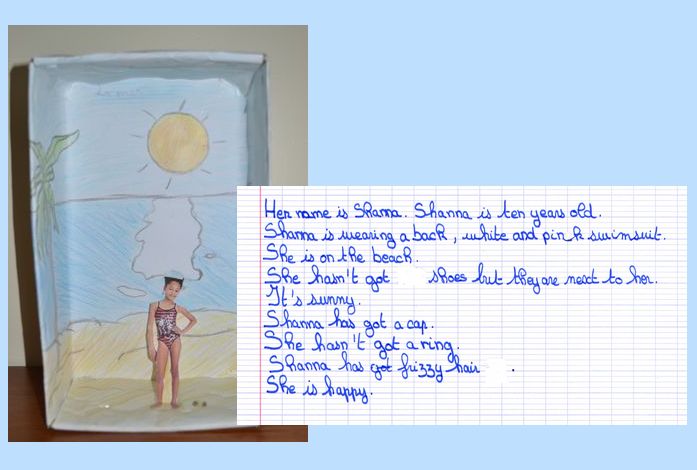 Her name is Shanna. Shanna is ten years old.
Shanna is wearing a back, white and pink swimsuit.
She is on the beach.
She hasn't got shoes but they are next to her.
It's sunny.
Shanna has got a cap.
She hasn't got a ring.
Shanna has got frizzy hair .
She is happy.